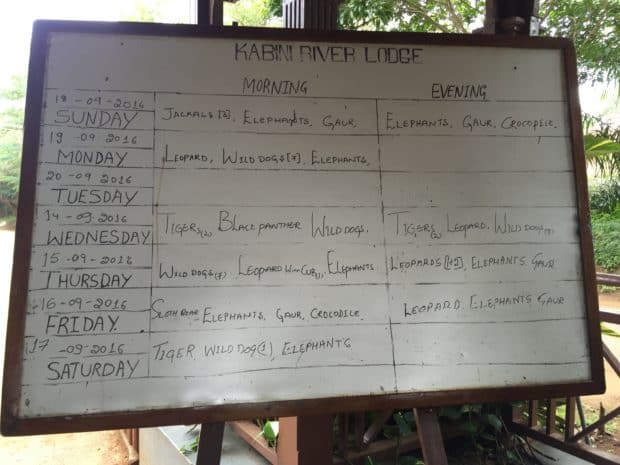 KABINI RIVER LODGE
MORNING EVENING
18-09-2016
SUNDAY JACKALS [2], ELEPHANTS, GAUR, ELEPHANTS, GAUR, CROCODILE.
19-09 2016
MONDAY LEOPARD, WILD DOGS ELEPHANTS,
20-09 2016
TUESDAY
14-09-2016
WEDNESDAY TIGERS(2) BLACK PANTHER WILD DOGS. TIGERS LEOPARD. WILD DOGS
15-09-2016
THURSDAY WILD DOGS(7), LEOPARD WITH CUB(1), ELEPHANTS LEOPARDS ELEPHANTS GAUR
16-09-2016
FRIDAY SLOTH BEAR ELEPHANTS, GAUR, CROCODILE LEOPARD ELEPHANTS GAUR
17-09-2016
SATURDAY TIGER WILD DOG(1), ELEPHANTS